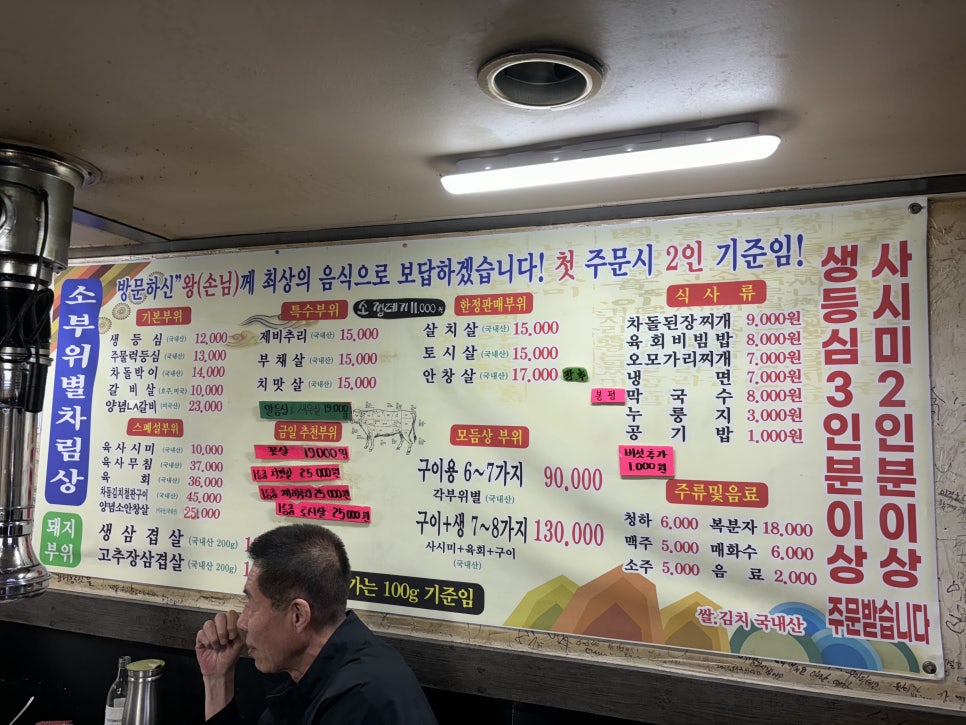 방문하신"왕(손님)께 최상의 음식으로 보답하겠습니다! 첫 주문시 2인 기준임!
소부위별차림상
기본부위
생등심 (국내산) 12,000
주물럭등심 (국내산) 13,000
차돌박이 (국내산) 14,000
갈비살 (호주,미국) 10,000
양념LA갈비 (미국산) 23,000
스페셜부위
육사시미 (국내산) 10,000
육사무침 (국내산) 37,000
육회 (국내산) 36,000
차돌김치철판구이 (국내산) 45,000
양념소안창살 25,000
특수부위
소 껍데기 11,000원
제비추리 (국내산) 15,000
부채살 (국내산) 15,000
치맛살 (국내산) 15,000
19,000
금일 추천부위
꽃살 19000원
치맛살 25,000
제비추리 25,000원
토시살 25,000원
한정판매부위
살치살 (국내산) 15,000
토시살 (국내산) 15,000
안창살 (국내산) 17,000
모듬상 부위
구이용 6~7가지 90,000
각부위별 (국내산)
구이+생 7~8가지 130,000
사시미+육회+구이
(국내산)
식사류
차돌된장찌개 9,000원
육회비빔밥 8,000원
오모가리찌개 7,000원
냉면 7,000원
막국수 8,000원
누룽지 3,000원
공기밥 1,000원
버섯추가
1,000원
주류및음료
청하 6,000 복분자 18,000
맥주 5,000 매화수 6,000
소주 5,000 음료 2,000
돼지
부위
생삼겹살 (국내산 200g)
고추장삼겹살 (국내산 200g)
가는 100g 기준임
쌀.김치 국내산
생등심3인분이상
사시미2인분이상
주문받습니다